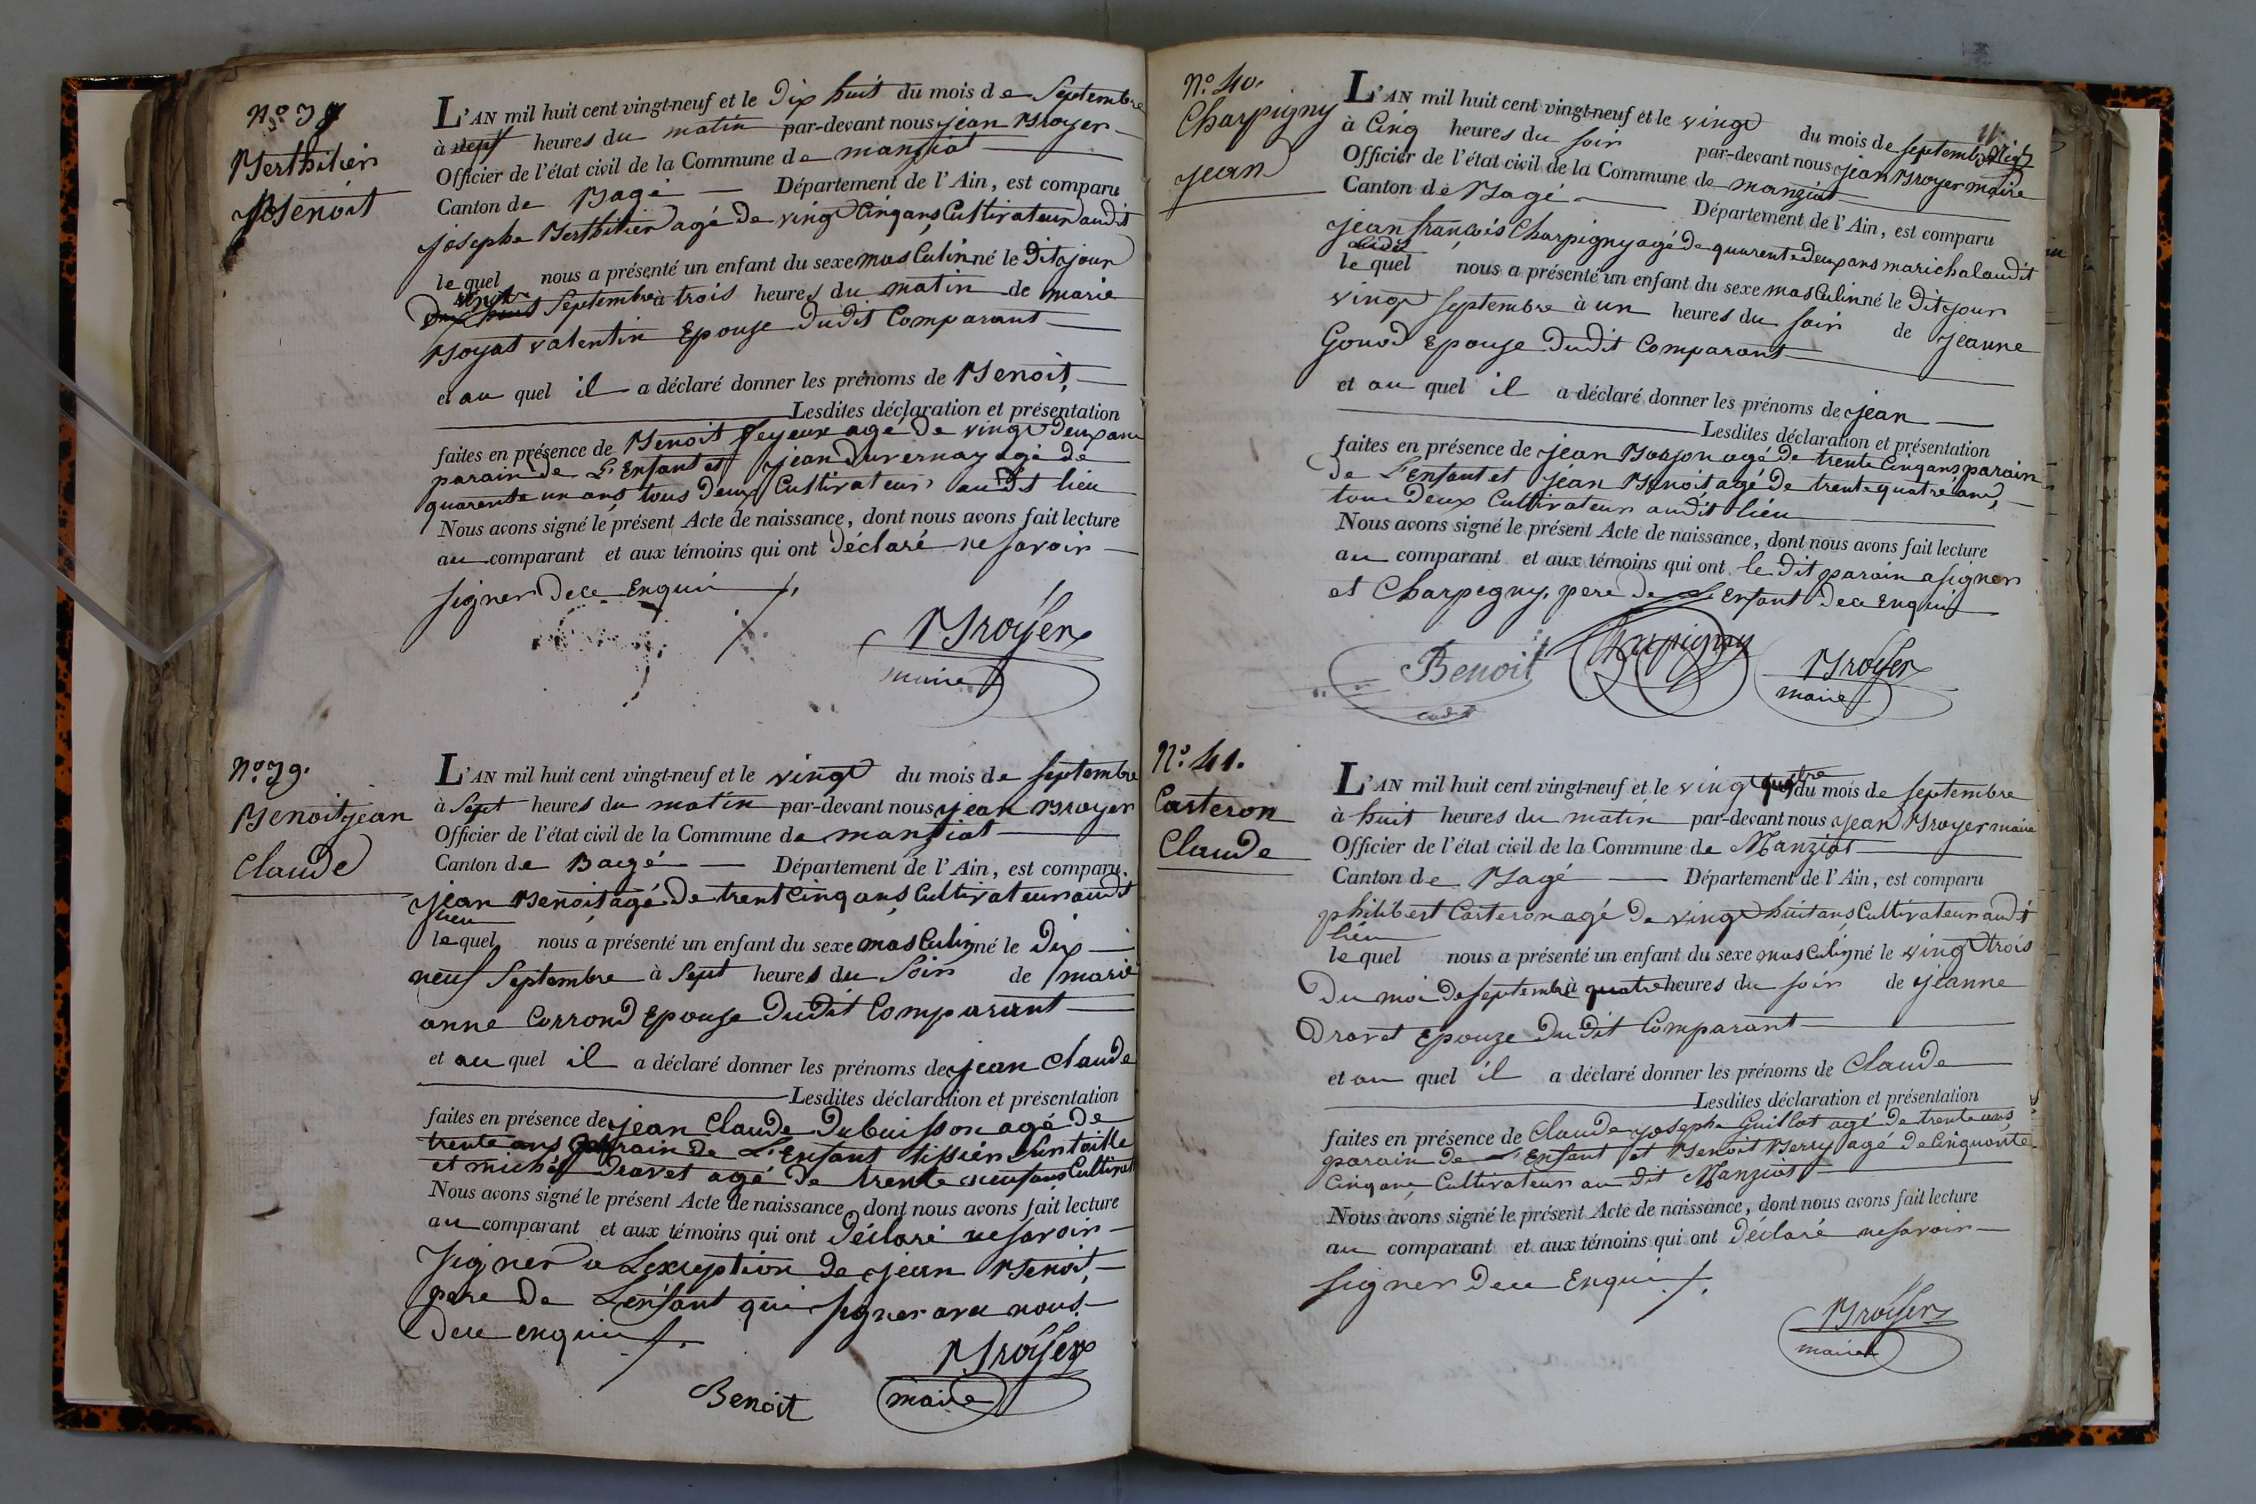 N.o 38
Berthilier
Benoit
L'AN mil huit cent vingt-neuf et le dix huit du mois de Septembre
à heures du matin par-devant nous jean Broyer
Officier de l'état civil de la Commune de manziat
Canton de Bagé Département de l'Ain, est comparu
josephe Berthilier agé de vingt Cinq ans Cultivateur audit
le quel nous a présenté un enfant du sexe masculin né le dit jour
Septembre à trois heures du matin de marie
Boyat valentin Epouse dudit Comparant
et au quel il a déclaré donner les prénoms de Benoit
Lesdites déclaration et présentation
faites en présence de Benoit feyeux agé de vingt deux ans
parain de L'Enfant et jean duvernay agé de
quarente un ans tous deux Cultivateur audit lieu
Nous avons signé le présent Acte de naissance, dont nous avons fait lecture
au comparant et aux témoins qui ont déclaré ne savoir
signer dece Enquis
Broyer
maire
N.o 39.
Benoit jean
Claude
L'AN mil huit cent vingt-neuf et le vingt du mois de septembre
à Sept heures du matin par-devant nous jean Broyer
Officier de l'état civil de la Commune de manziat
Canton de Bagé Département de l'Ain, est comparu
jean Benoit agé de trent Cinq ans Cultivateur audit
lieu
le quel nous a présenté un enfant du sexe masculin né le Dix
neuf Septembre à Sept heures du Soir de marie
anne Corrond Epouse dudit Comparant
et au quel il a déclaré donner les prénoms de jean Claude
Lesdites déclaration et présentation
faites en présence de jean Claude Dubuisson agé de
trente ans parain de L'Enfant tissier
et michel Dravet agé de trente neuf ans Cultivat
Nous avons signé le présent Acte de naissance, dont nous avons fait lecture
au comparant et aux témoins qui ont déclaré ne savoir
signer a Lexception de jean Benoit
pere de L'enfant qui signer avec nous
dece enquis
Broyer
Benoit maire
N.o 40.
Charpigny
jean
L'AN mil huit cent vingt-neuf et le vingt du mois de septembre
à Cinq heures du soir par-devant nous jean Broyer maire
Officier de l'état civil de la Commune de manziat
Canton de Bagé Département de l'Ain, est comparu
jean françois Charpigny agé de quarente deux ans marichal audit
le quel nous a présenté un enfant du sexe masculin né le dit jour
vingt septembre à un heures du soir de jeanne
Gonod Epouse dudit Comparant
et au quel il a déclaré donner les prénoms de jean
Lesdites déclaration et présentation
faites en présence de jean agé de trente Cinq ans parain
de L'Enfant et jean Benoit agé de trente quatre ans
tous deux Cultivateur audit lieu
Nous avons signé le présent Acte de naissance, dont nous avons fait lecture
au comparant et aux témoins qui ont le dit parain a signer
et Charpigny pere de L'Enfant dece Enquis
Benoit Charpigny Broyer
maire
N.o 41.
Carteron
Claude
L'AN mil huit cent vingt-neuf et le vingt quatre du mois de septembre
à huit heures du matin par-devant nous jean Broyer maire
Officier de l'état civil de la Commune de Manziat
Canton de Bagé Département de l'Ain, est comparu
philibert Carteron agé de vingt huit ans Cultivateur audit
lieu
le quel nous a présenté un enfant du sexe masculin né le vingt trois
Du moi de septembre à quatre heures du soir de jeanne
Dravet Epouze dudit Comparant
et au quel il a déclaré donner les prénoms de Claude
Lesdites déclaration et présentation
faites en présence de Claude josephe Guillot agé de trente ans
parain de L'Enfant et Benoit Berry agé de Cinquante
Cinq ans Cultivateur au dit Manziat
Nous avons signé le présent Acte de naissance, dont nous avons fait lecture
au comparant et aux témoins qui ont déclaré ne savoir
signer dece Enquis
Broyer
maire